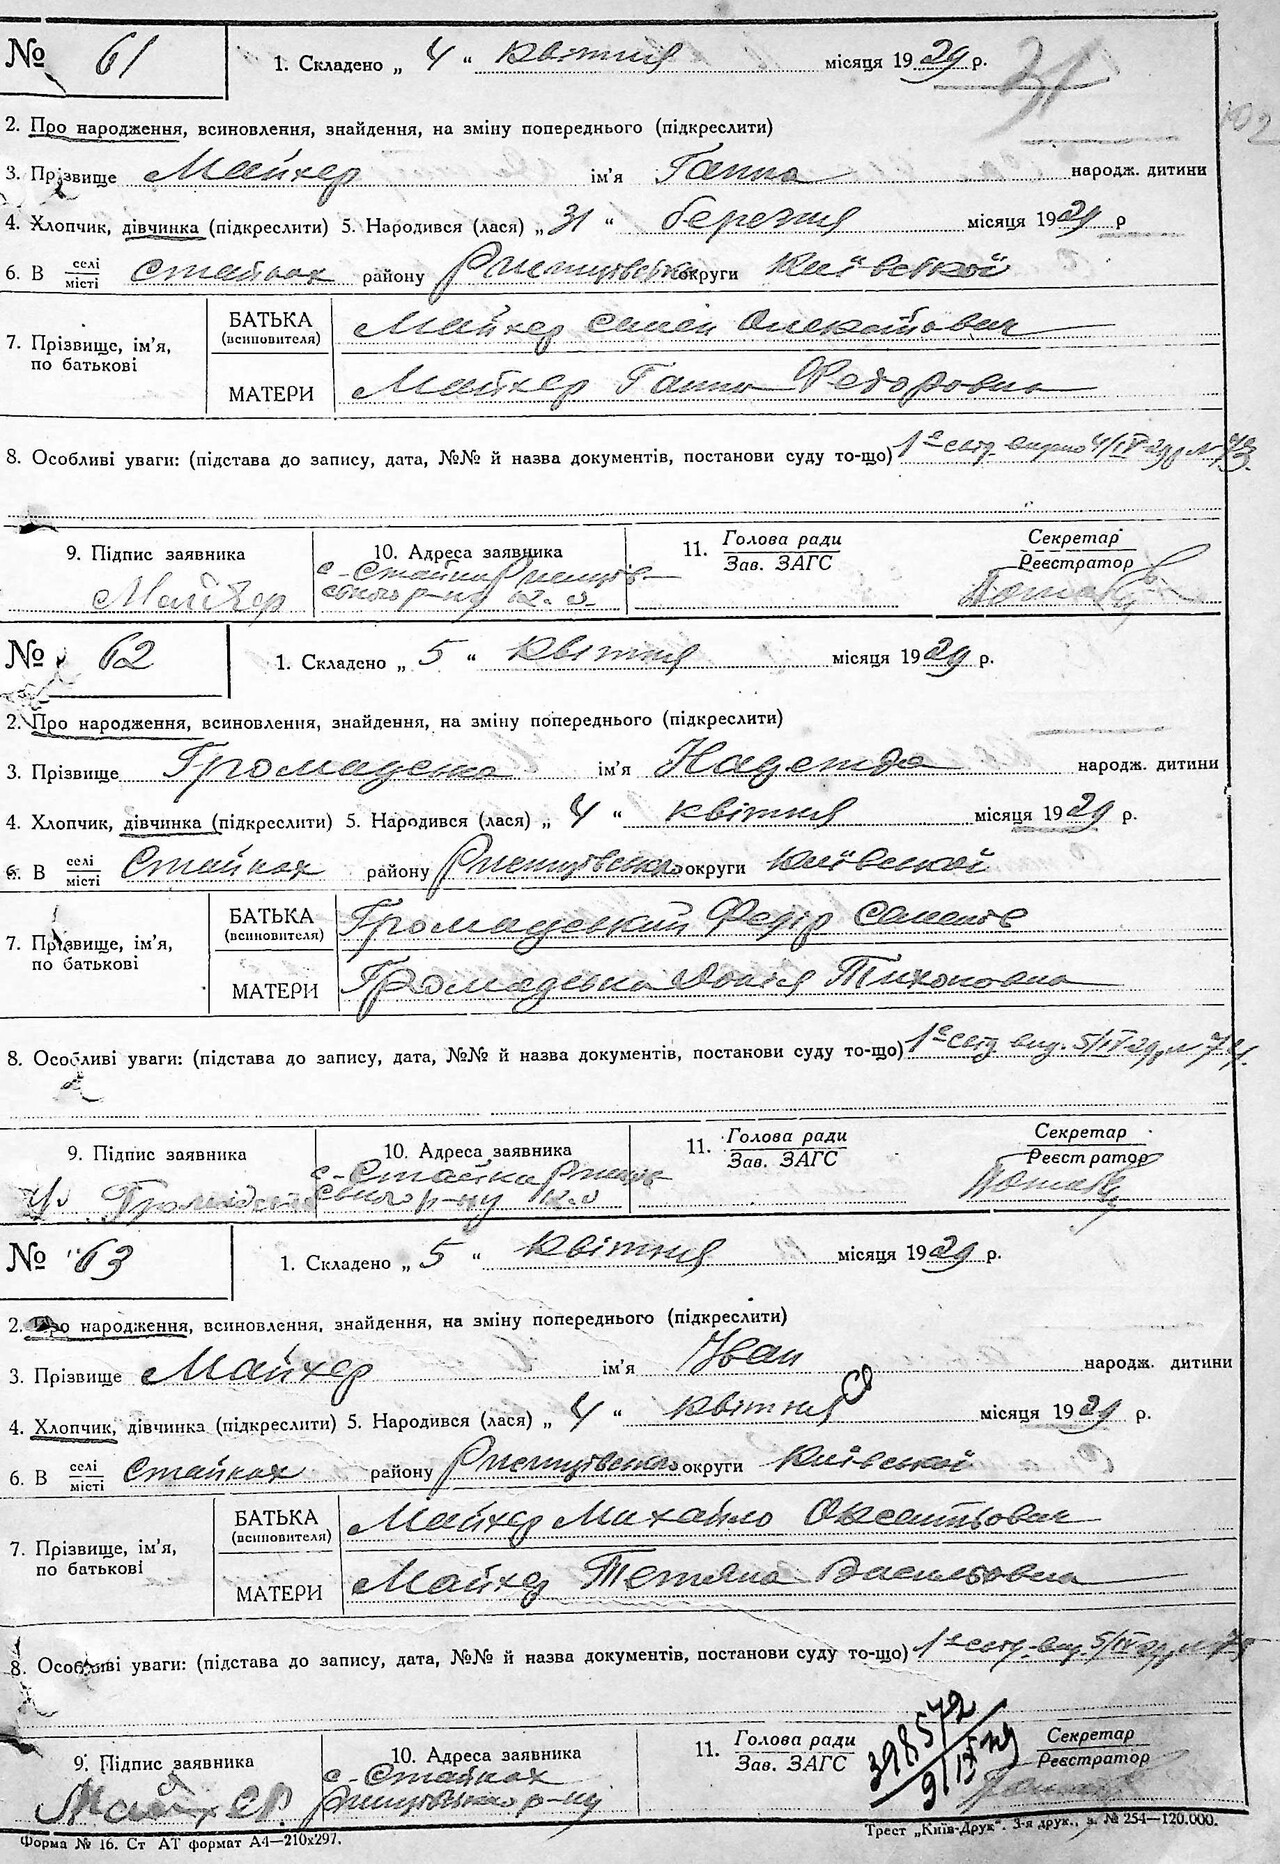 № 61 1. Складено „ 4 “ квітня місяця 1929 р. 31
102
2. Про народження, всиновлення, знайдення, на зміну попереднього (підкреслити)
3. Прізвище Майхер ім'я Ганна народж. дитини
4. Хлопчик, дівчинка (підкреслити) 5. Народився (лася) „ 31 “ березня місяця 1929 р
6. В селі/місті Стайках району Ржищівського округи Київської
7. Прізвище, ім'я, по батькові
БАТЬКА (всиновителя) Майхер Семен
МАТЕРИ Майхер Ганна Федоровна
8. Особливі уваги: (підстава до запису, дата, №№ й назва документів, постанови суду то-що) 4/IV-29р № 73.
9. Підпис заявника 10. Адреса заявника 11. Голова ради Секретар
Зав. ЗАГС Реєстратор
Майхер с-Стайки Ржищів-
ського р-ну К. о.
№ 62 1. Складено „ 5 “ квітня місяця 1929 р.
2. Про народження, всиновлення, знайдення, на зміну попереднього (підкреслити)
3. Прізвище Громадська ім'я Надежда народж. дитини
4. Хлопчик, дівчинка (підкреслити) 5. Народився (лася) „ 4 “ квітня місяця 1929 р.
6. В селі/місті Стайках району Ржищівського округи Київської
7. Прізвище, ім'я, по батькові
БАТЬКА (всиновителя) Громадський Федір
МАТЕРИ Громадська Тихоновна
8. Особливі уваги: (підстава до запису, дата, №№ й назва документів, постанови суду то-що) вид. 5/IV 29р № 74.
9. Підпис заявника 10. Адреса заявника 11. Голова ради Секретар
Зав. ЗАГС Реєстратор
с-Стайки Ржищів-
ського р-ну К. о
№ 63 1. Складено „ 5 “ квітня місяця 1929 р.
2. Про народження, всиновлення, знайдення, на зміну попереднього (підкреслити)
3. Прізвище Майхер ім'я Іван народж. дитини
4. Хлопчик, дівчинка (підкреслити) 5. Народився (лася) „ 4 “ квітня місяця 1929 р.
6. В селі/місті Стайках району Ржищівського округи Київської
7. Прізвище, ім'я, по батькові
БАТЬКА (всиновителя) Майхер Михайло
МАТЕРИ Майхер Тетяна Васильовна
8. Особливі уваги: (підстава до запису, дата, №№ й назва документів, постанови суду то-що) вид. 5/IV 29р № 75
9. Підпис заявника 10. Адреса заявника 11. Голова ради Секретар
Зав. ЗАГС Реєстратор
398572
Майхер с-Стайках
Ржищівського р-ну
Форма № 16. Ст АТ формат А4—210х297. Трест „Київ-Друк“. 3-я друк., з. № 254—120.000.